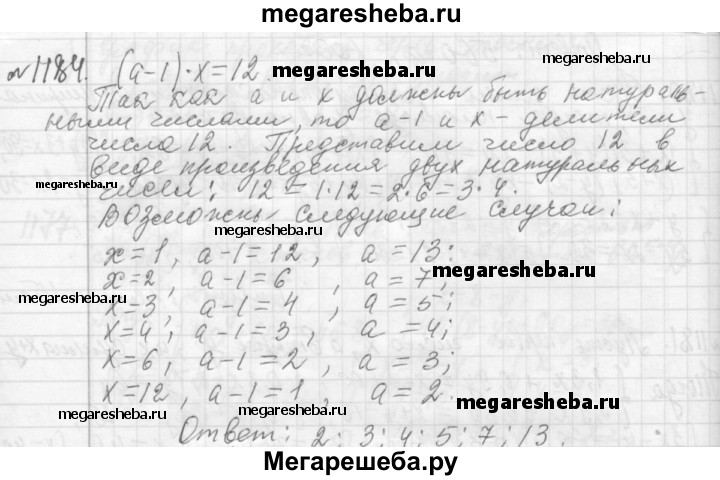 megaresheba.ru
№1184. (a-1)·x=12
megaresheba.ru
Так как a и x должны быть натураль-
ными числами, то a-1 и x - делители
числа 12. Представим число 12 в
виде произведения двух натуральных
megaresheba.ru
чисел: 12=1·12=2·6=3·4.
Возможны следующие случаи:
megaresheba.ru
x=1, a-1=12, a=13:
x=2, a-1=6, a=7;
megaresheba.ru
megaresheba.ru
x=3, a-1=4, a=5;
x=4, a-1=3, a=4;
x=6, a-1=2, a=3;
x=12, a-1=1, a=2.
megaresheba.ru
megaresheba.ru
Ответ: 2; 3; 4; 5; 7; 13.
megaresheba.ru
Мегарешеба.ру